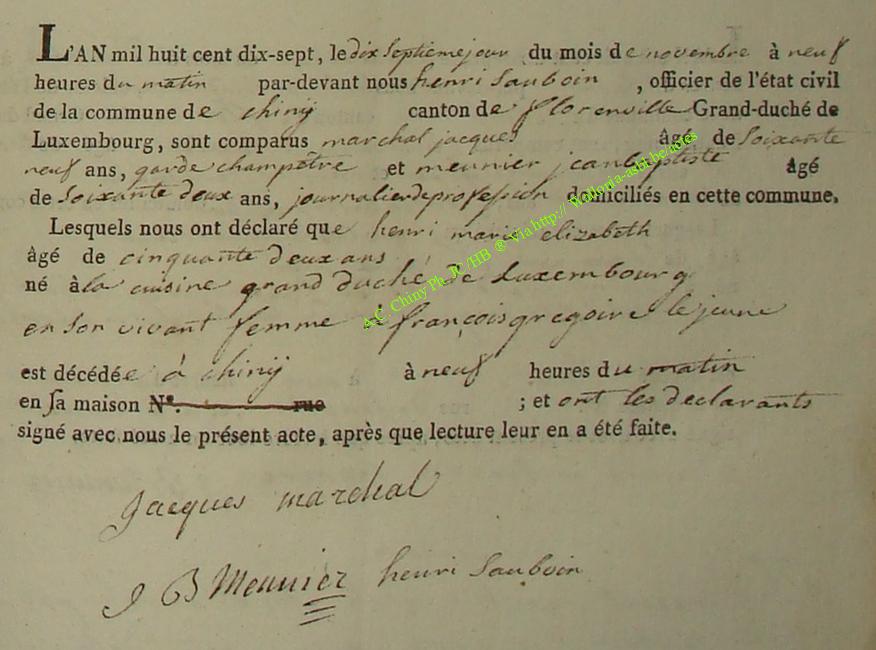 L'AN mil huit cent dix-sept, le dix septieme jour du mois de novembre à neuf
heures du matin par-devant nous henri Sauboin , officier de l'état civil
de la commune de chiny canton de florenville Grand-duché de
Luxembourg, sont comparus marchal jacques âgé de Soixante
neuf ans, garde champêtre et meunier jean baptiste âgé
de Soixante deux ans, journalier de profession domiciliés en cette commune.
Lesquels nous ont déclaré que henri marie elizabeth
âgé de cinquante deux ans
né à la cuisine grand duché de Luxembourg
en son vivant femme à françois gregoire le jeune
est décédée à chiny à neuf heures du matin
en sa maison N°. rue ; et ont les declarants
signé avec nous le présent acte, après que lecture leur en a été faite.
Jacques marchal
J B Meunier henri Sauboin
A.C. Chiny Ph. JC /HB ® Via http:// Wallonia-asbl.be/